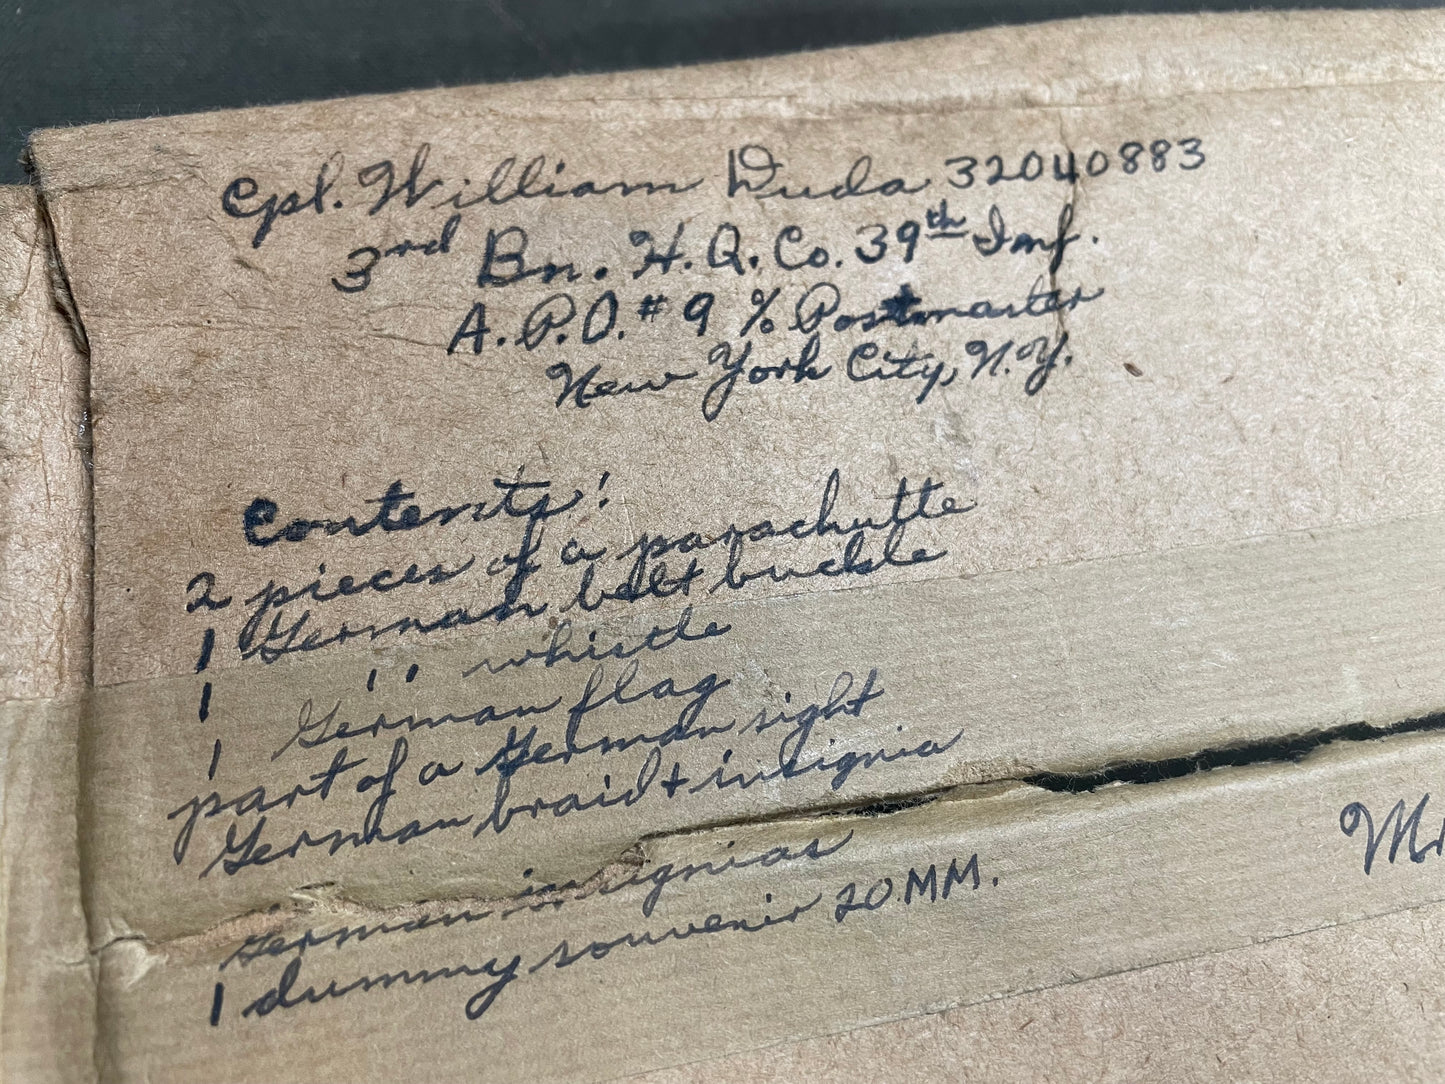 Cpl. William Duda 32040883
3rd Bn. H.Q. Co. 39th Inf.
A.P.O. # 9 % Postmaster
New York City, N.Y.
Contents:
2 pieces of a parachutte
1 German belt buckle
1 " whistle
1 German flag
part of a German sight
German braid + insignia
German insignias
1 dummy souvenir 20.MM.